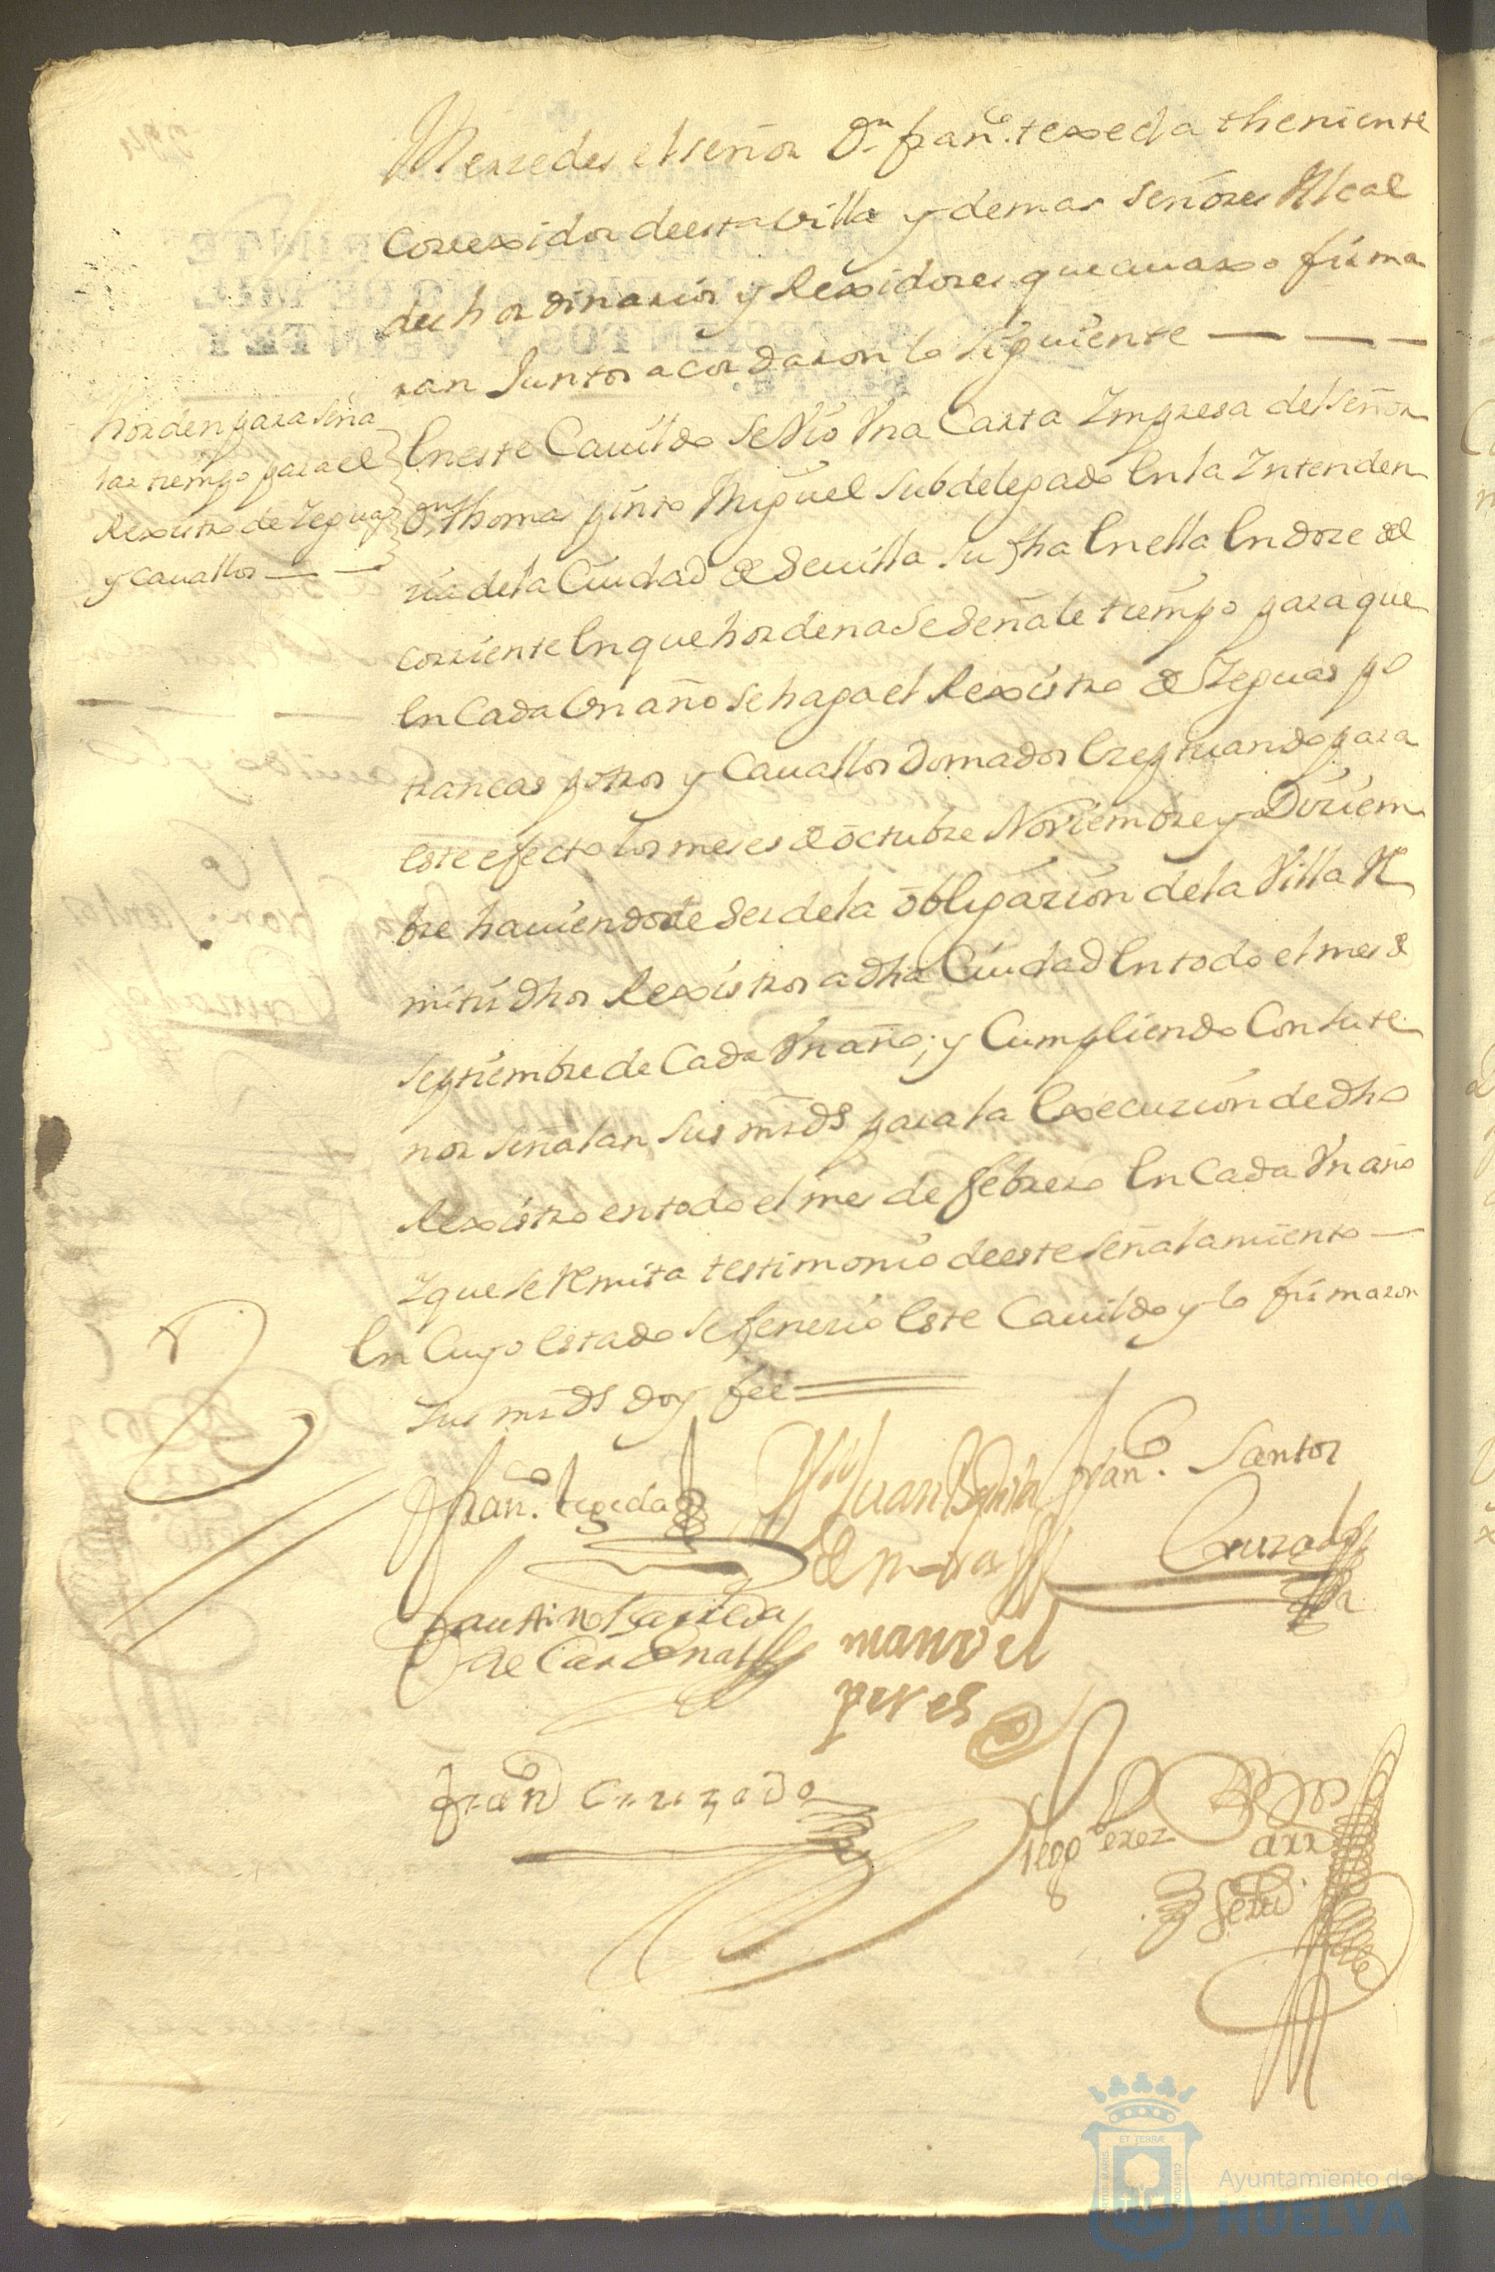 Merzedes el señor Dn franco. texeda theniente
Correxidor deesta villa y demas señores Alcal
des hordinarios y Rexidores que auaxo firma
ran Juntos acordaron lo siguiente — — —
horden para seña
lar tiempo para el
Rexistro de Yeguas
y cauallos — —
En este Cauildo se Vio Vna Carta Impresa del señor
Dn thomas pinto Miguel subdelegado En la Intenden
zia de la Ciudad de Seuilla su fha En ella En doze del
corriente En que hordena Se Señale tiempo para que
En Cada Vn año se haga el Rexistro de Yeguas po
trancas potros y Cauallos domados Exeptuando para
Este efecto los meses de octubre Noviembre y Diziem
bre hauiendo de ser de la obligazion de la Villa Re
mitir dhos Rexistros a dha Ciudad En todo el mes de
septiembre de Cada Vn año; y Cumpliendo Con su te
nor señalan sus mrds para la Execuzion de dho
Rexistro en todo el mes de febrero En Cada Vn año
Y que se Remita testimonio deeste señalamiento —
En Cuyo Estado se fenezio Este Cauildo y lo firmaron
sus mrds doy fee
franco. tegeda
Juan Baptista
de mora
franco. Santos
Cruzado
faustino
de Cardenas
manuel
peres
franco Cruzado
Diego Perez
Ayuntamiento de
HUELVA